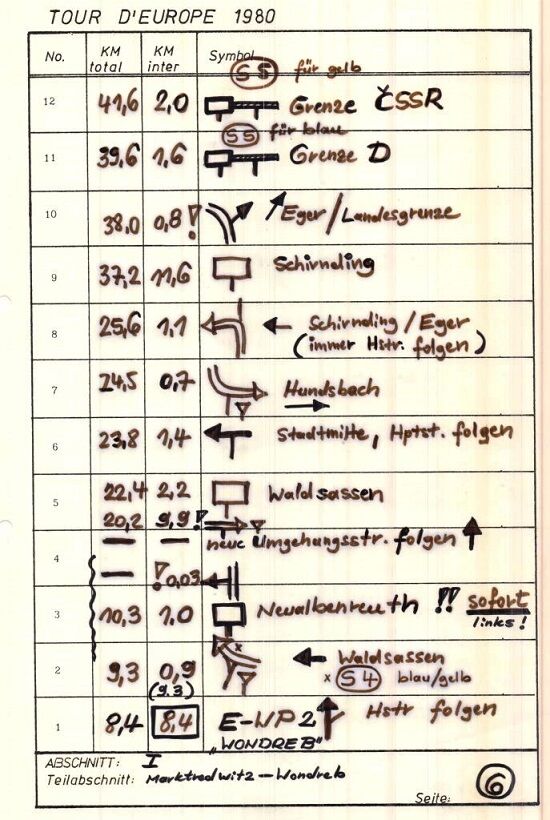 TOUR D'EUROPE 1980
No. KM total KM inter Symbol
SS für gelb
12 41,6 2,0 Grenze ČSSR
SS für blau
11 39,6 1,6 Grenze D
10 38,0 0,8 ! Eger/Landesgrenze
9 37,2 11,6 Schirnding
8 25,6 1,1 Schirnding/Eger
(immer Hstr. folgen)
7 24,5 0,7 Hundsbach
6 23,8 1,4 Stadtmitte, Hptst. folgen
5 22,4 2,2 Waldsassen
20,2 9,9 !
neue Umgehungsstr. folgen
4 — ! 0,03
3 10,3 1.0 Neualbenreuth !! sofort
links!
2 9,3 0,9 Waldsassen
(9.3) x S4 blau/gelb
1 8,4 8,4 E-WP2 Hstr folgen
"WONDREB"
ABSCHNITT: I
Teilabschnitt: Marktredwitz—Wondreb
Seite: 6